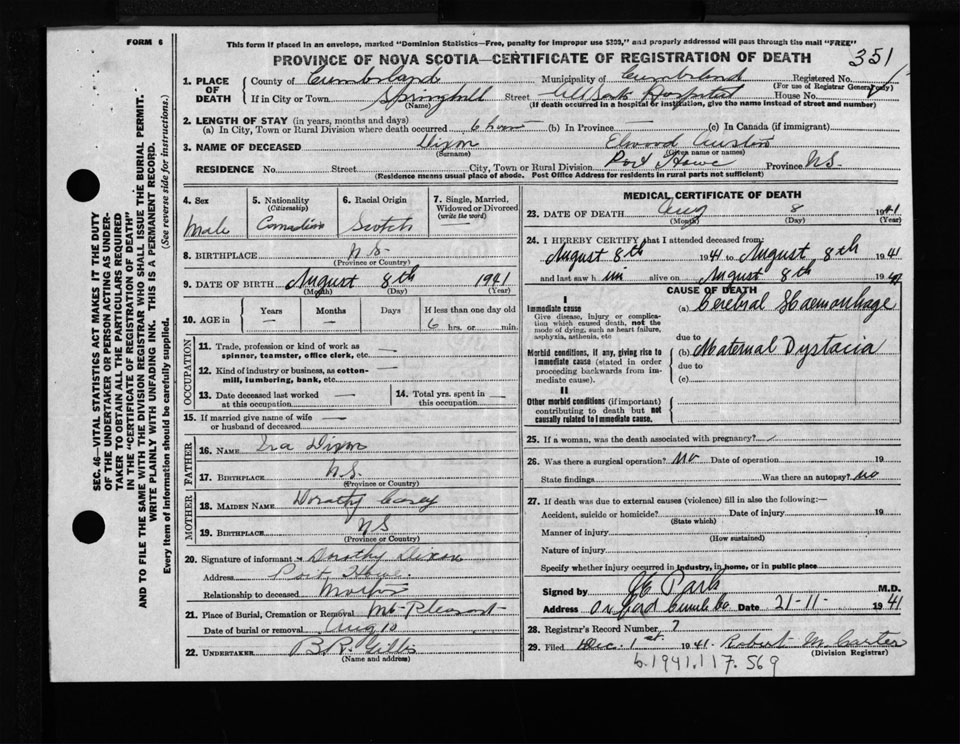 FORM 6
This form if placed in an envelope, marked "Dominion Statistics—Free, penalty for improper use $300," and properly addressed will pass through the mail "FREE"
PROVINCE OF NOVA SCOTIA—CERTIFICATE OF REGISTRATION OF DEATH 351
1. PLACE OF DEATH County of Cumberland Municipality of Cumberland Registered No.
(For use of Registrar General only)
If in City or Town Springhill Street All Saints Hospital House No.
(Name) (If death occurred in a hospital or institution, give the name instead of street and number)
2. LENGTH OF STAY (in years, months and days)
(a) In City, Town or Rural Division where death occurred 6 hours (b) In Province — (c) In Canada (if immigrant)
3. NAME OF DECEASED Dixon Elwood Austin
(Surname) (Given name or names)
RESIDENCE No. Street City, Town or Rural Division Port Howe Province N.S.
(Residence means usual place of abode. Post Office Address for residents in rural parts not sufficient)
SEC. 46—VITAL STATISTICS ACT MAKES IT THE DUTY
OF THE UNDERTAKER OR PERSON ACTING AS UNDER-
TAKER TO OBTAIN ALL THE PARTICULARS REQUIRED
IN THE "CERTIFICATE OF REGISTRATION OF DEATH"
AND TO FILE THE SAME WITH THE DIVISION REGISTRAR WHO SHALL ISSUE THE BURIAL PERMIT.
WRITE PLAINLY WITH UNFADING INK. THIS IS A PERMANENT RECORD.
Every item of information should be carefully supplied. (See reverse side for instructions.)
4. Sex
Male
5. Nationality
(Citizenship)
Canadian
6. Racial Origin
Scotch
7. Single, Married,
Widowed or Divorced
(write the word)
8. BIRTHPLACE N.S.
(Province or Country)
9. DATE OF BIRTH August 8th 1941
(Month) (Day) (Year)
10. AGE in Years Months Days If less than one day old
6 hrs. or min.
OCCUPATION
11. Trade, profession or kind of work as
spinner, teamster, office clerk, etc. —
12. Kind of industry or business, as cotton-
mill, lumbering, bank, etc. —
13. Date deceased last worked
at this occupation —
14. Total yrs. spent in
this occupation —
15. If married give name of wife
or husband of deceased —
FATHER
16. NAME Ira Dixon
17. BIRTHPLACE N.S.
(Province or Country)
MOTHER
18. MAIDEN NAME Dorothy Casey
19. BIRTHPLACE N.S
(Province or Country)
20. Signature of informant Dorothy Dixon
Address Port Howe.
Relationship to deceased Mother
21. Place of Burial, Cremation or Removal Mt-Pleasant
Date of burial or removal Aug 10
22. UNDERTAKER B.R. Gibbs
(Name and address)
MEDICAL CERTIFICATE OF DEATH
23. DATE OF DEATH Aug 8 1941
(Month) (Day) (Year)
24. I HEREBY CERTIFY that I attended deceased from
August 8th 1941 to August 8th 1941
and last saw him alive on August 8th 1941
CAUSE OF DEATH
I
Immediate cause
Give disease, injury or complica-
tion which caused death, not the
mode of dying, such as heart failure,
asphyxia, asthenia, etc
(a) Cerebral Haemorrhage
due to
Morbid conditions, if any, giving rise to
immediate cause (stated in order
proceeding backwards from im-
mediate cause).
(b) Maternal Dystocia
due to
(c)
II
Other morbid conditions (if important)
contributing to death but not
causally related to immediate cause.
25. If a woman, was the death associated with pregnancy?
26. Was there a surgical operation? No Date of operation 19
State findings Was there an autopsy? No
27. If death was due to external causes (violence) fill in also the following:—
Accident, suicide or homicide? Date of injury 19
(State which)
Manner of injury
(How sustained)
Nature of injury
Specify whether injury occurred in industry, in home, or in public place
Signed by Park M.D.
Address Oxford Cumb. Co Date 21-11- 1941
28. Registrar's Record Number 7
29. Filed Dec. 1st. 1941. Robert M. Carter
(Division Registrar)
b.1941.117.569